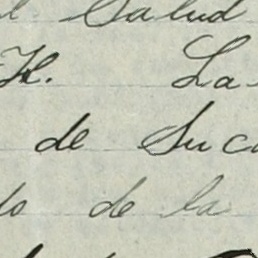 l Salud
K. La
de Suc
to de la